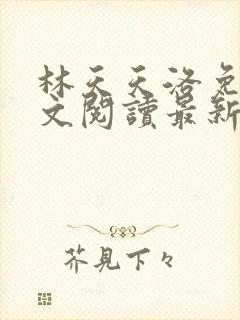 林天天洛免
文閱讀最新
芥見下々